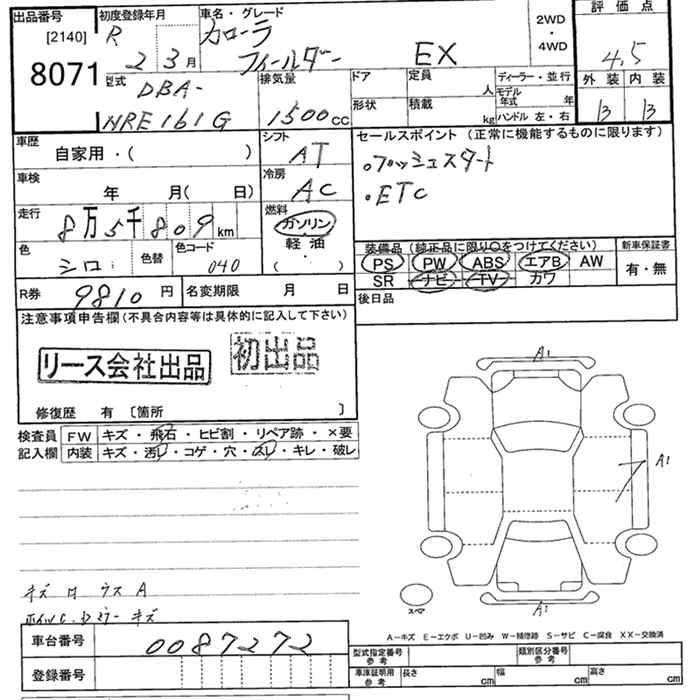 出品番号 [2140] 8071
初度登録年月 R 2 3月
車名・グレード カローラ フィールダー EX
2WD・4WD
評価点 4.5
外装 内装
B B
型式 DBA-NRE161G
排気量 1500CC
ドア
形状
定員 人
積載 kg
ディーラー・並行
モデル年式 年
ハンドル 左・右
車歴 自家用・( )
シフト AT
車検 年 月( 日)
冷房 AC
走行 8万5千809km
燃料 ガソリン 軽油 ( )
色 シロ
色替
色コード 040
R券 9810円
名変期限 月 日
セールスポイント(正常に機能するものに限ります)
・プッシュスタート
・ETC
装備品(純正品に限り○をつけてください)
PS PW ABS エアB AW
SR ナビ TV カワ
新車保証書
有・無
後日品
注意事項申告欄(不具合内容等は具体的に記入して下さい)
リース会社出品 初出品
修復歴 有 〔箇所 〕
検査員記入欄
FW キズ・飛石・ヒビ割・リペア跡・×要
内装 キズ・汚レ・コゲ・穴・スレ・キレ・破レ
A1
A1
A1
スペア
A―キズ E―エクボ U―凹み W―補修跡 S―サビ C―腐食 XX―交換済
車台番号 0087272
登録番号
型式指定番号 参考
類別区分番号 参考
車庫証明用 参考 長さ cm 幅 cm 高さ cm